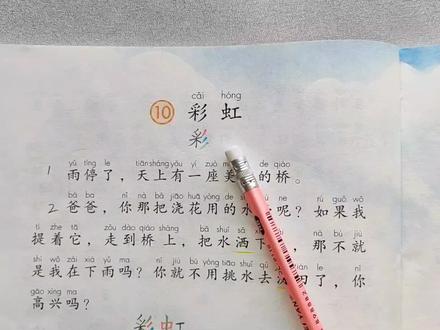 cǎi hóng
10 彩虹
彩
yǔ tíng le tiān shàng yǒu yí zuò měi de qiáo
1 雨停了，天上有一座美 的桥。
bà ba nǐ nà bǎ jiāo huā yòng de ne rú guǒ wǒ
2 爸爸，你那把浇花用的水 呢？如果我
tí zhe tā zǒu dào shàng nà bú jiù
提着它，走到桥上，把水洒下 ，那不就
shì wǒ zài xià yǔ ma nǐ jiù bú yòng tiāo shuǐ qù le nǐ
是我在下雨吗？你就不用挑水去 了，你
gāo xìng ma
高兴吗？
彩虹